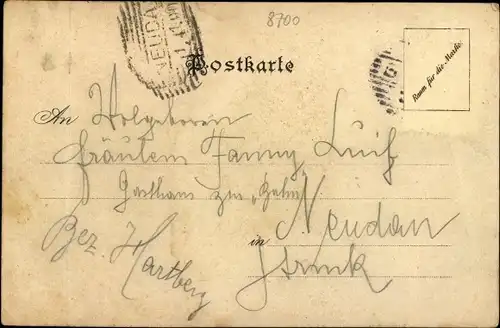 8700
Postkarte
Raum für die Marke.
An Wolgeboren
Fräulein Fanny Luif
Gasthaus zur „Bahn"
in Neudau
Bez. Hartberg